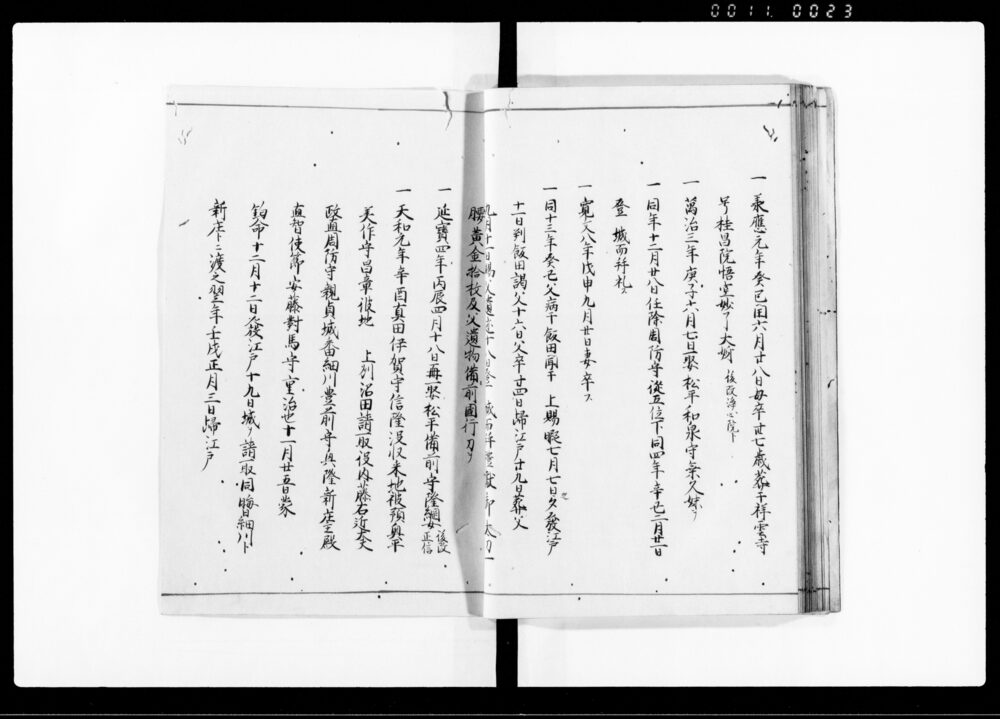 0011. 0023
一 承應元年癸巳閏六月廿八日母卒卅七歳葬于祥雲寺
号桂昌院悟室妙了大姉 後改浄心院ト
一 萬治三年庚子六月七日娶松平和泉守乗久妹ヲ
一 同年十二月廿八日任除周防守從五位下同四年辛巳二月廿一日
登 城而拜礼ス
一 寛文八年戊申九月廿日妻卒ス
一 同十三年癸已父病于飯田聞于 上賜暇七月七日夕發江戸
十一日到飯田謁父十六日父卒廿四日歸江戸廿九日葬父
九月十一日賜父遺迹十八日登 城而拜禮獻御太刀一
腰黄金拾枚及父遺物備前國行刀ヲ
一 延寶四年丙辰四月十八日再娶松平備前守隆綱女 後改正信
一 天和元年辛酉真田伊賀守信隆没収来地被預奥平
美作守昌章彼地 上列沼田請取役内藤右近太夫
政直周防守親貞城番細川豊前守興隆新庄主殿
直智使節安藤對馬守重治也十一月廿五日蒙
鈞命十二月十二日發江戸十九日城ヲ請取同晦日細川ト
新庄トニ渡之翌年壬戌正月三日歸江戸